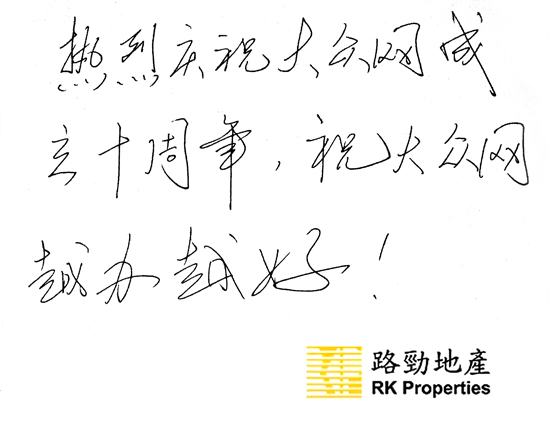 热烈庆祝大众网成
立十周年，祝大众网
越办越好！
路勁地產
RK Properties